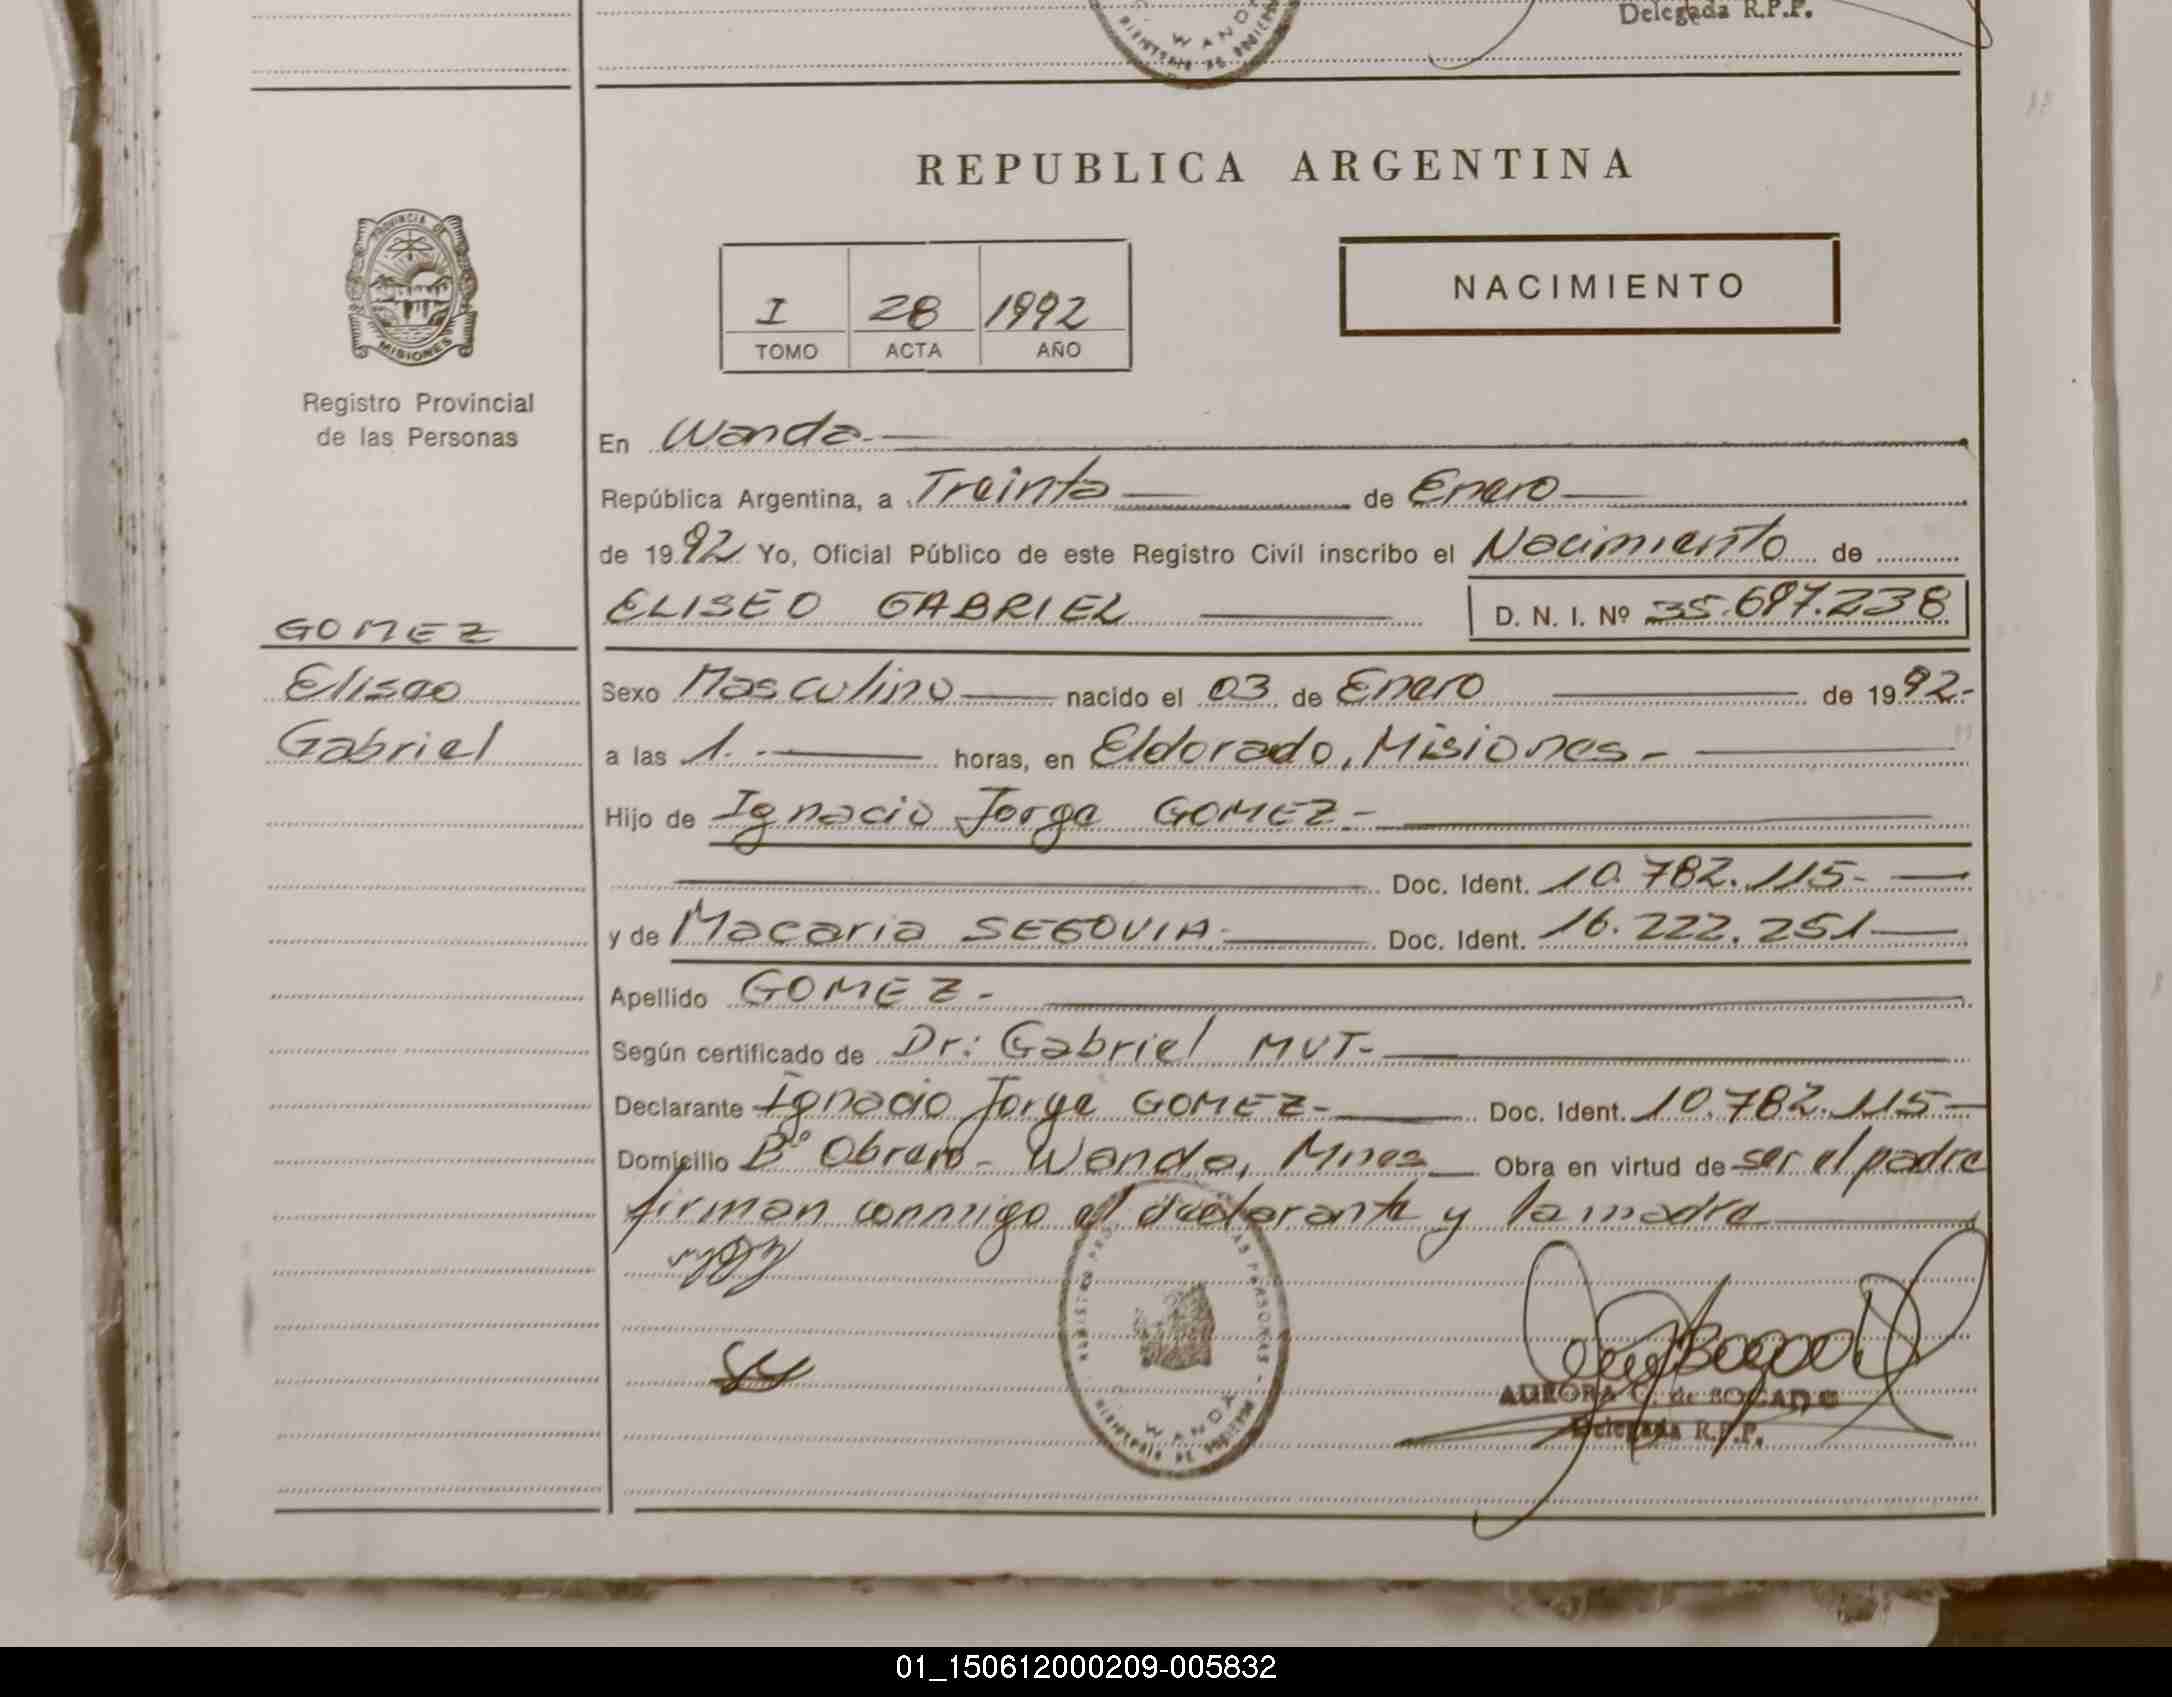 Delegada R.P.P.
WANDA
REPUBLICA ARGENTINA
PROVINCIA DE
MISIONES
Registro Provincial
de las Personas
NACIMIENTO
I 28 1992
TOMO ACTA AÑO
En Wanda.-
República Argentina, a Treinta de Enero
de 1992 Yo, Oficial Público de este Registro Civil inscribo el Nacimiento de
GOMEZ
Eliseo
Gabriel
ELISEO GABRIEL D. N. I. Nº 35.697.238
Sexo Masculino nacido el 03 de Enero de 1992.-
a las 1.- horas, en Eldorado, Misiones.-
Hijo de Ignacio Jorge GOMEZ.-
Doc. Ident. 10.782.115.-
y de Macaria SEGOVIA.- Doc. Ident. 16.222.251
Apellido GOMEZ.-
Según certificado de Dr: Gabriel MUT.-
Declarante Ignacio Jorge GOMEZ.- Doc. Ident. 10.782.115
Domicilio Bº Obrero - Wanda, Mnes Obra en virtud de ser el padre
firman conmigo el declarante y la madre
WANDA
AURORA C. de BOGADO
Delegada R.P.P.
01_150612000209-005832